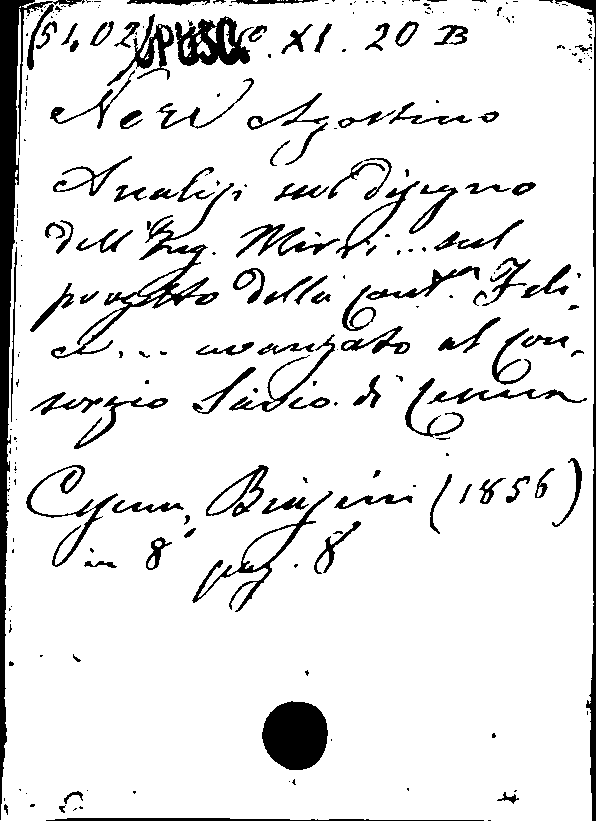 (51,02) OPUSC. XI. 20 B
Neri Agostino
Analisi sul disegno
dell'Ing. Mirri... sul
progetto della cont.ssa Feli-
ce... avanzato al Con-
sorzio Savio di Cesena
Cesena, Biasini (1856)
in 8° pag. 8